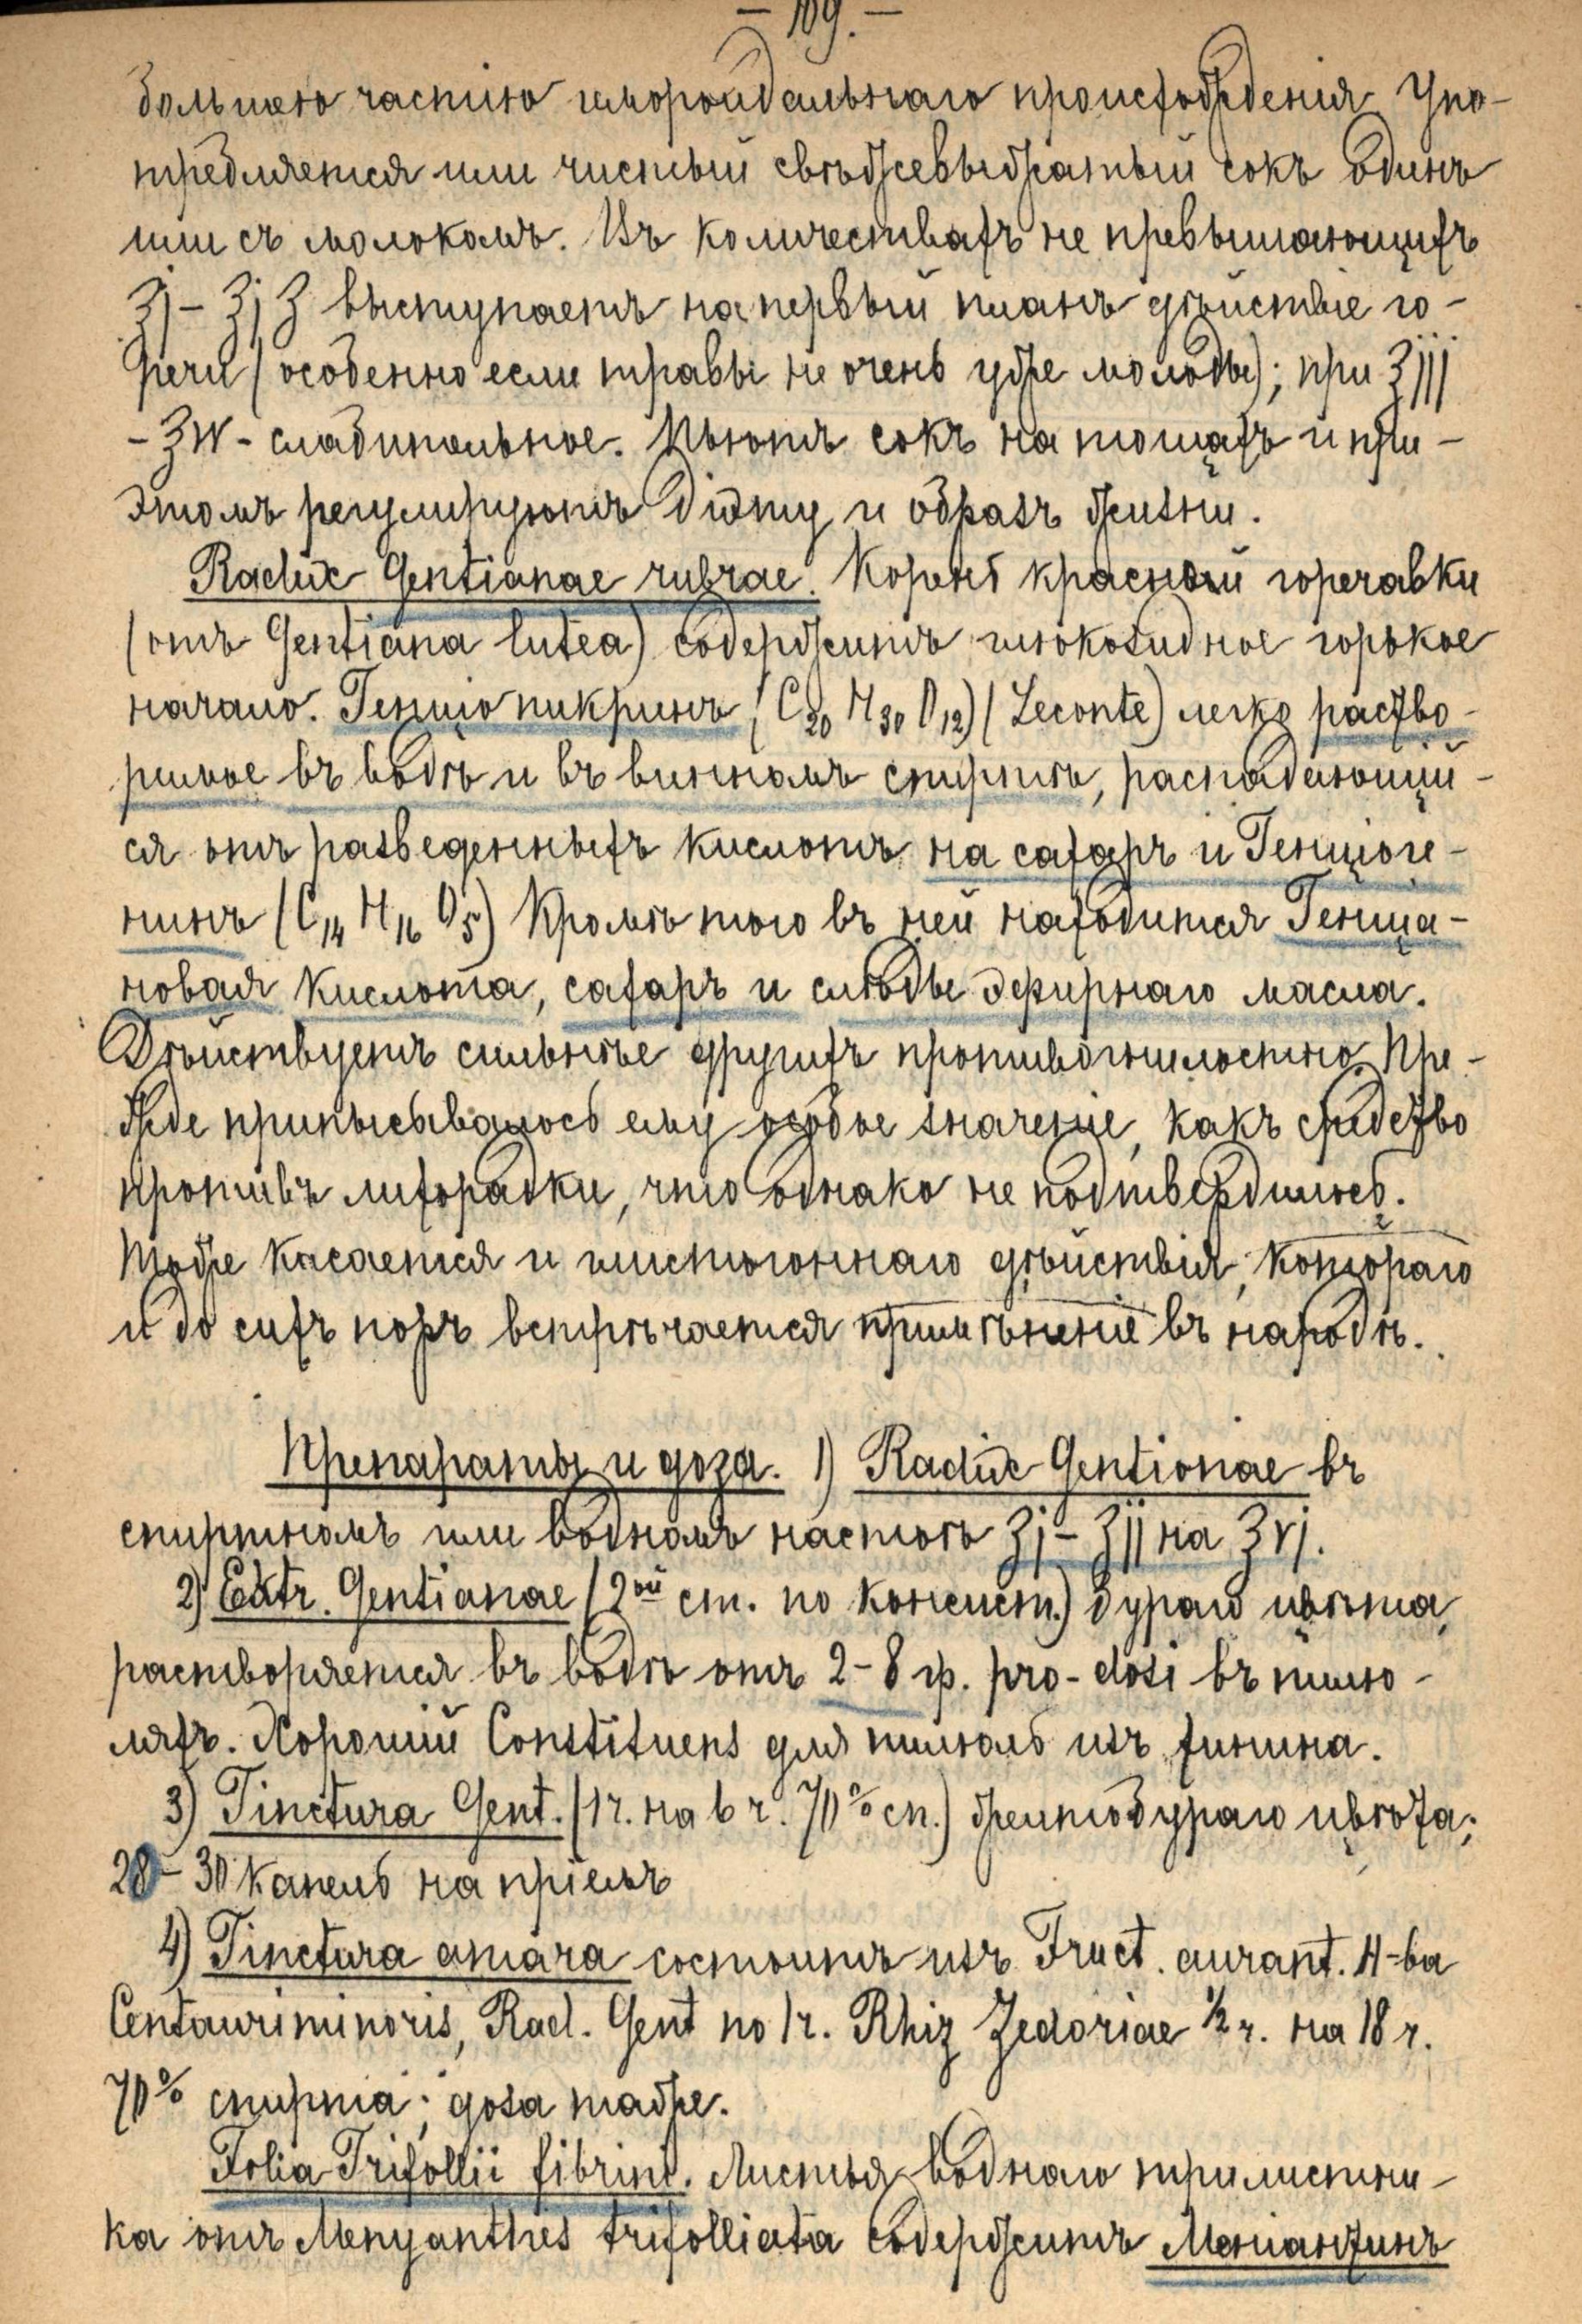 – 109. –
большею частію гемороидальнаго происхожденія. Упо-
требляется или чистый свѣжевыжатый сокъ одинъ
или съ молокомъ. Въ количествахъ не превышающихъ
ʒj – ʒjʒ выступаетъ на первый планъ дѣйствіе го-
речи (особенно если травы не очень уже молоды); при ʒjjj
– ʒIV – слабительное. Пьютъ сокъ на тощахъ и при-
этомъ регулируютъ діэту и образъ жизни.
Radix Gentianae rubrae. Корень красной горечавки
(отъ Gentiana lutea) содержитъ глюкозидное горькое
начало. Генціопикринъ (C20 H30 O12) (Leconte) легко раство-
римое въ водѣ и въ винномъ спиртѣ, распадающій-
ся отъ разведенныхъ кислотъ на сахаръ и Генціоге-
нинъ (C14 H16 O5) Кромѣ того въ ней находится Генціа-
новая кислота, сахаръ и слѣды эфирнаго масла.
Дѣйствуетъ сильнѣе другихъ противогнилостно. Пре-
жде приписывалось ему особое значеніе, какъ средство
противъ лихорадки, что однако не подтвердилось.
Тоже касается и глистогоннаго дѣйствія, котораго
и до сихъ поръ встрѣчается примѣненіе въ народѣ.
Препараты и доза. 1) Radix Gentionae въ
спиртномъ или водномъ настоѣ ʒj – ʒjj на ʒvj.
2) Extr. Gentianae (2ой ст. по консист.) бураго цвѣта,
растворяется въ водѣ отъ 2–8 гр. pro-dosi въ пилю-
ляхъ. Хорошій Constituens для пилюль изъ хинина.
3) Tinctura Gent. (1 ч. на 6 ч. 70% сп.) желтобураго цвѣта;
20–30 капель на пріемъ
4) Tinctura amara состоитъ изъ Fruct. aurant. H-ba
Centauriminoris, Rad. Gent по 1 ч. Rhiz Zedoriae ½ ч. на 18 ч.
70% спирта; доза таже.
Folia Trifollii fibrini. Листья воднаго трилистни-
ка отъ Menyanthes trifolliata содержитъ Меніантинъ